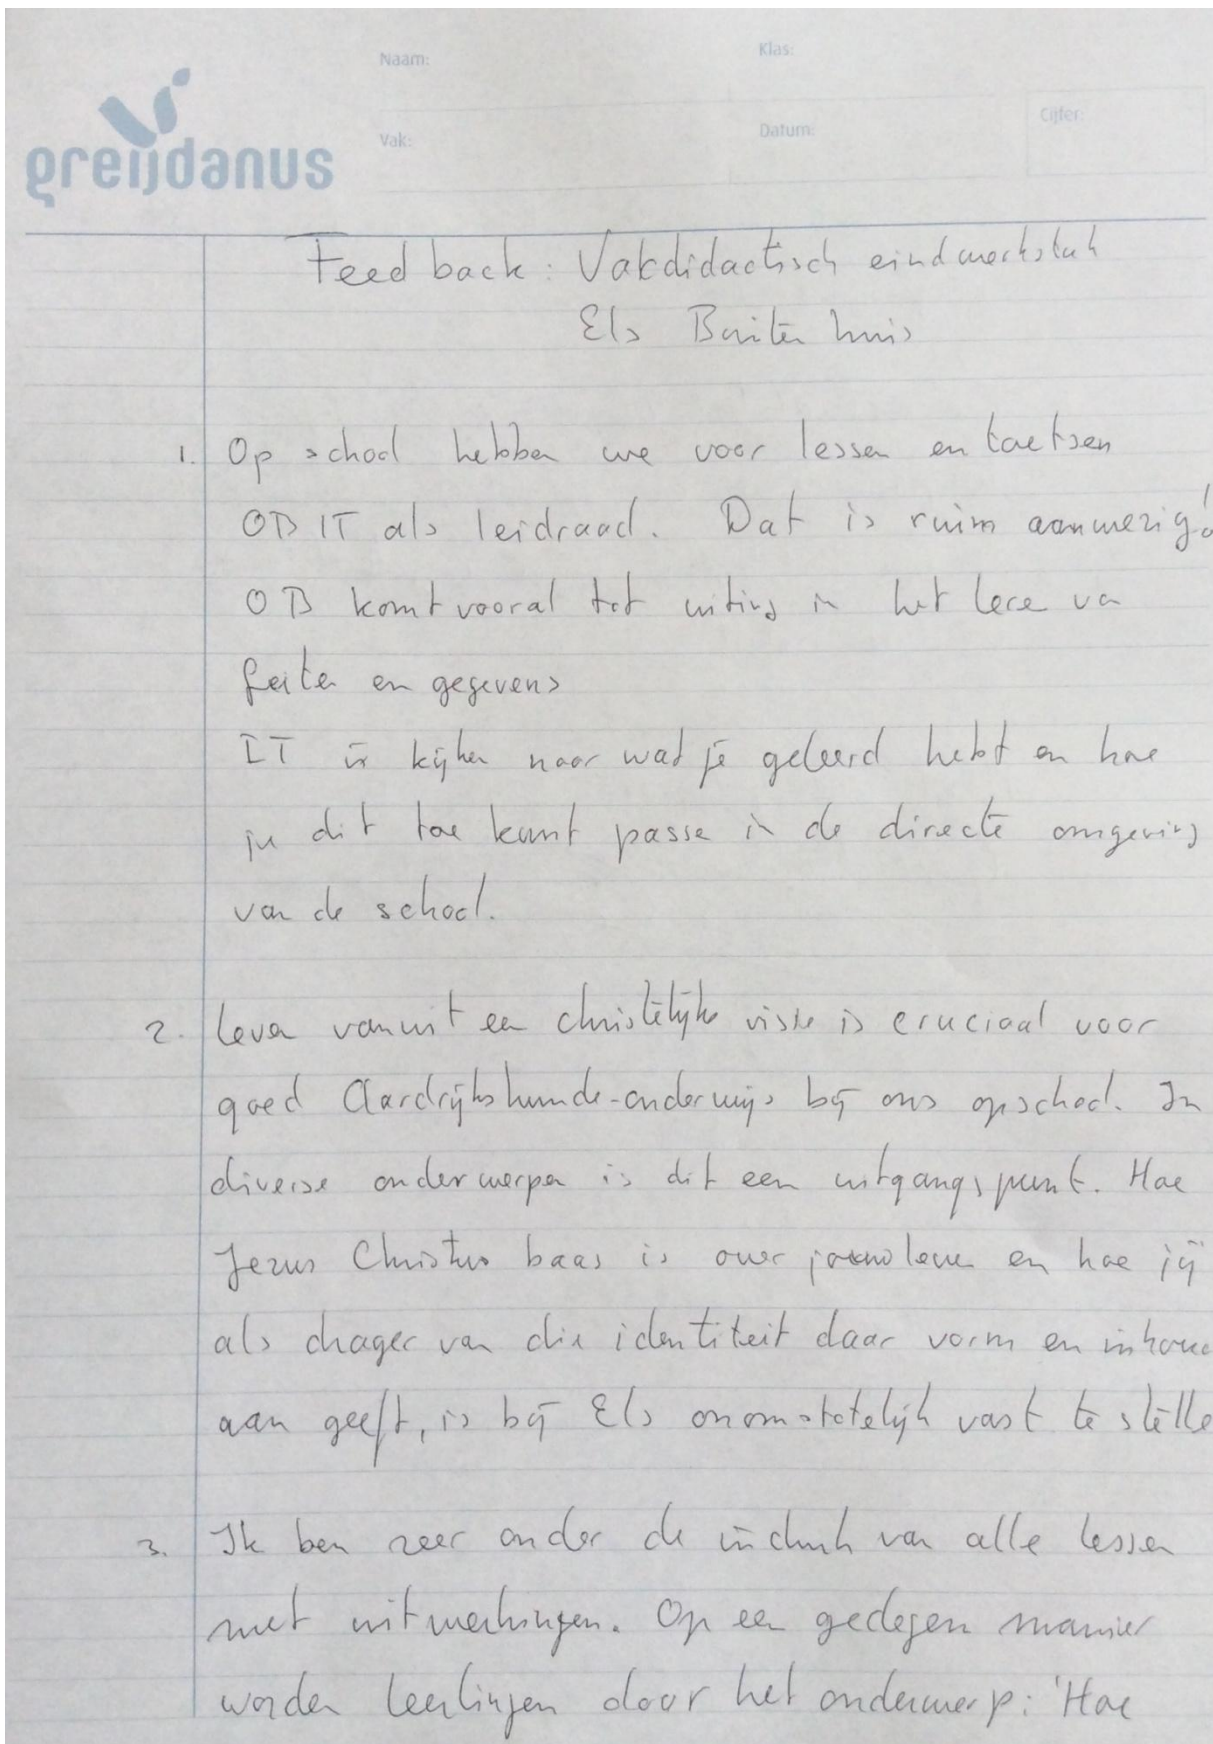 Naam:
Klas:
greijdanus
Vak:
Datum:
Cijfer:
Feedback: Vakdidactisch eindwerkstuk
Els Buitenhuis
1. Op school hebben we voor lessen en toetsen
OBIT als leidraad. Dat is ruim aanwezig!
OB komt vooral tot uiting in het leren van
feiten en gegevens
IT is kijken naar wat je geleerd hebt en hoe
je dit toe kunt passen in de directe omgeving
van de school.
2. Leven vanuit een christelijke visie is cruciaal voor
goed Aardrijkskunde-onderwijs bij ons op school. In
diverse onderwerpen is dit een uitgangspunt. Hoe
Jezus Christus baas is over jouw leven en hoe jij
als drager van die identiteit daar vorm en inhoud
aan geeft, is bij Els onomstotelijk vast te stellen
3. Ik ben zeer onder de indruk van alle lessen
met uitwerkingen. Op een gedegen manier
worden leerlingen door het onderwerp: 'Hoe